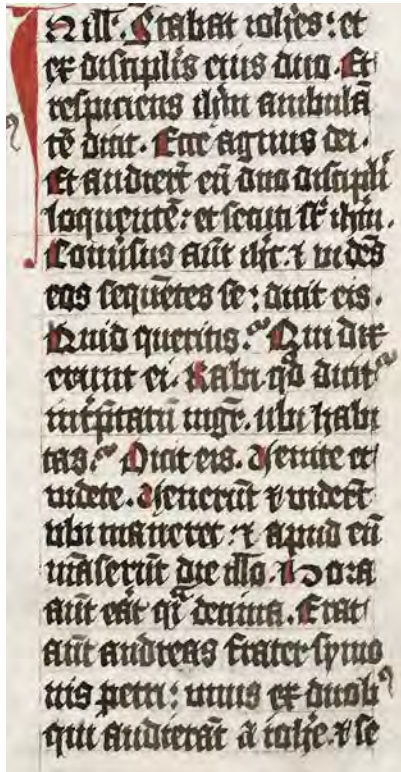 In ill̅. Stabat ioh̅es: et
ex discipl̅is eius duo. Et
respiciens ih̅m ambula̅
te̅ dixit. Ecce agnus dei.
Et audieru̅t eu̅ duo discipl̅i
loquente̅: et secuti su̅t ih̅m.
Conuersus aut̅ ih̅c. ⁊ vide̅s
eos seque̅tes se: dicit eis.
Quid queritis. Qui dix
erunt ei. Rabi. qd̅ dicit᷑
int̅p̅tatu̅ mg̅r. ubi habi
tas. Dicit eis. Venite et
videte. Veneru̅t ⁊ videru̅t
ubi maneret: ⁊ apud eu̅
ma̅seru̅t die illo. Hora
aut̅ erat q̅i decima. Erat
aut̅ andreas frater symo
nis petri: unus ex duobꝰ
qui audiera̅t a ioh̅e. ⁊ se